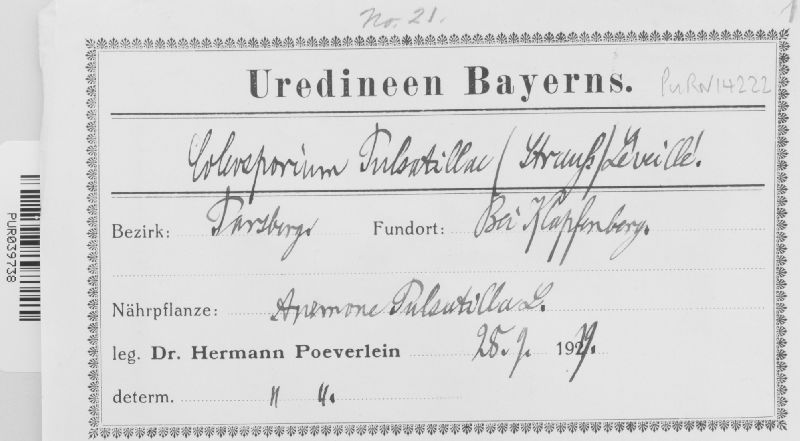 No. 21.
Uredineen Bayerns.
PurN14222
Coleosporium Pulsatillae (Strauß) Léveillé.
Bezirk: Parsberg. Fundort: Bei Klapfenberg.
Nährpflanze: Anemone Pulsatilla L.
leg. Dr. Hermann Poeverlein 28. 9. 1929.
determ. " ".
PUR039738